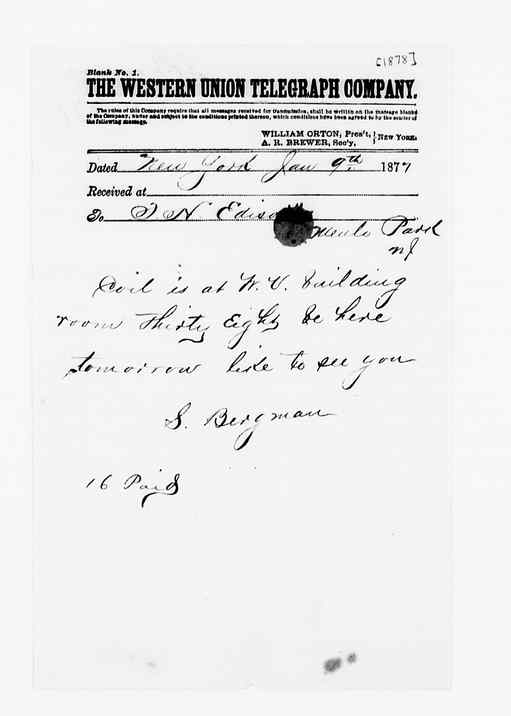 [1878]
Blank No. 1.
THE WESTERN UNION TELEGRAPH COMPANY.
The rules of this Company require that all messages received for transmission, shall be written on the message blanks
of the Company, under and subject to the conditions printed thereon, which conditions have been agreed to by the sender of
the following message.
WILLIAM ORTON, Pres't,
A. R. BREWER, Sec'y,
} NEW YORK.
Dated New York Jan 9th 1877
Received at
To T N Edison
Menlo Park
NJ
Coil is at W. U. building
room thirty Eight be here
tomorrow like to see you
S. Bergman
16 Paid